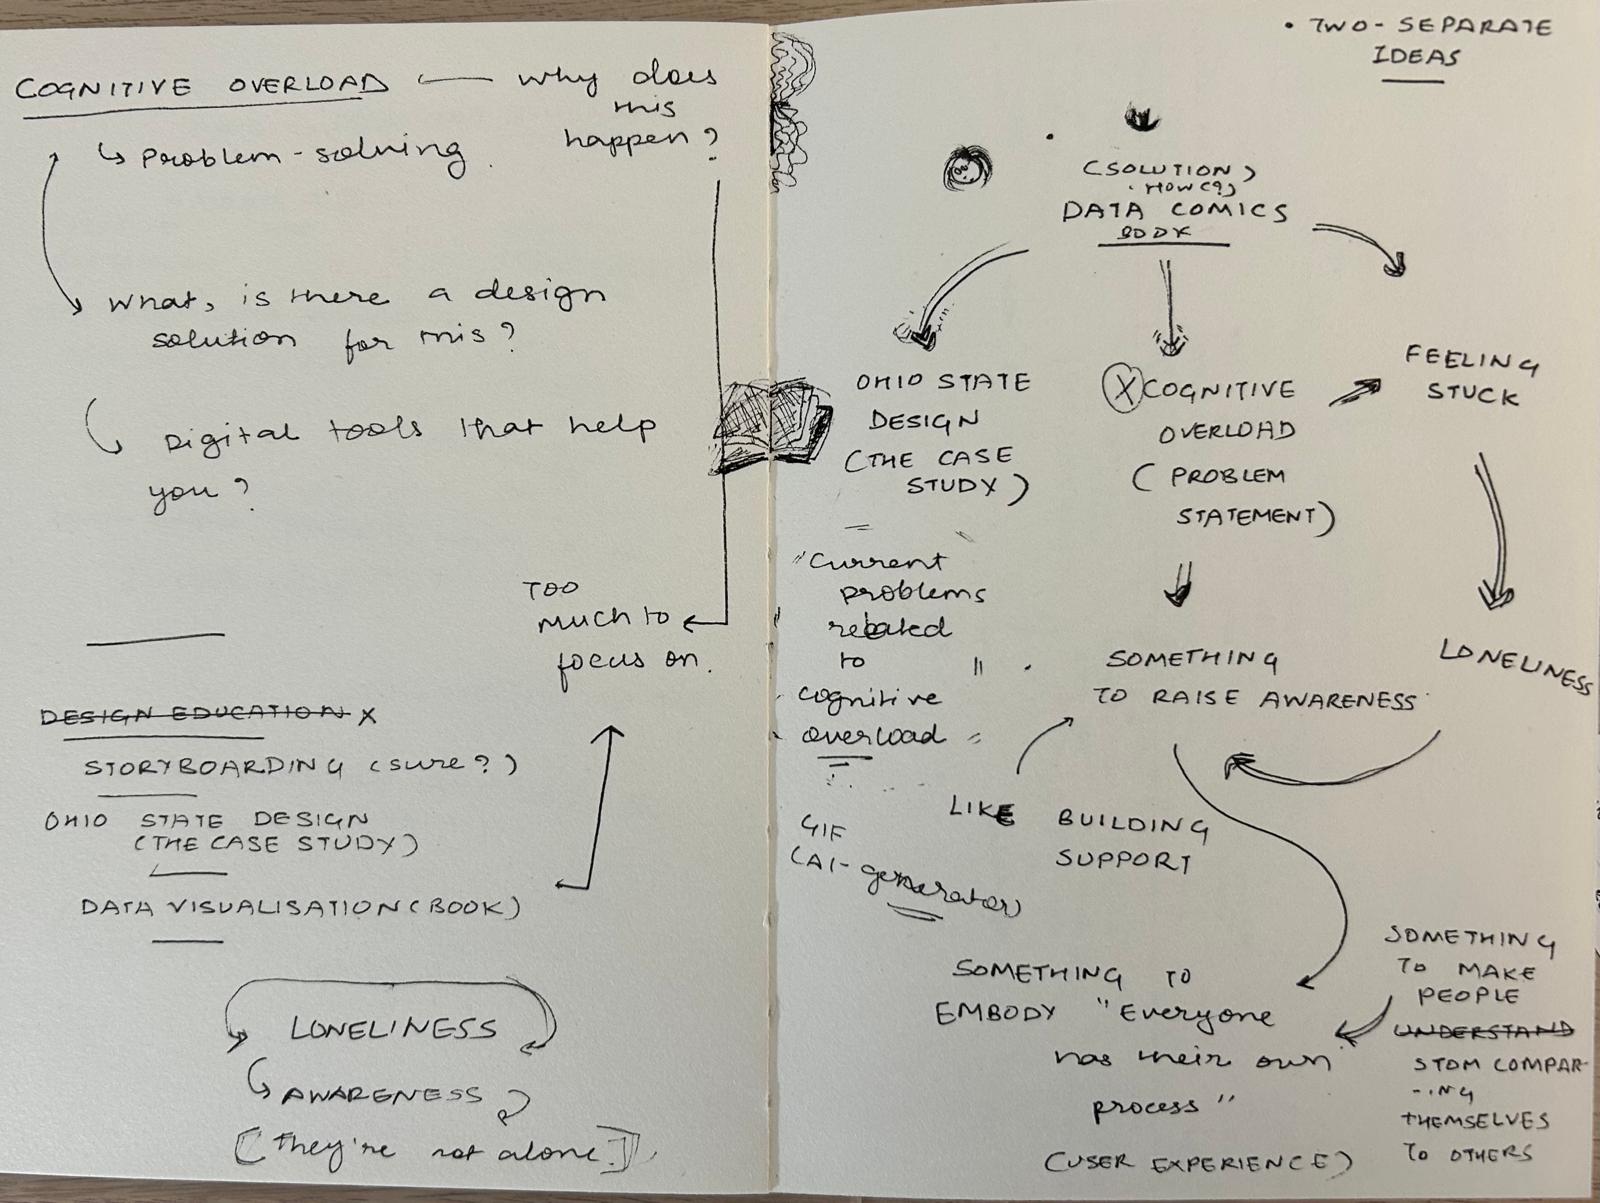 COGNITIVE OVERLOAD
why does
this
happen?
Problem-solving.
What, is there a design
solution for this?
Digital tools that help
you?
TOO
much to
focus on.
DESIGN EDUCATION X
STORYBOARDING (sure?)
OHIO STATE DESIGN
(THE CASE STUDY)
DATA VISUALISATION (BOOK)
LONELINESS
AWARENESS
[they're not alone.]
• TWO-SEPARATE
IDEAS
(SOLUTION)
HOW(?)
DATA COMICS
BOOK
OHIO STATE
DESIGN
(THE CASE
STUDY)
X COGNITIVE
OVERLOAD
(PROBLEM
STATEMENT)
FEELING
STUCK
"Current
problems
related
to
cognitive
overload"
SOMETHING
TO RAISE AWARENESS
LONELINESS
LIKE BUILDING
SUPPORT
GIF
(AI-generator)
SOMETHING TO
EMBODY "Everyone
has their own
process"
(USER EXPERIENCE)
SOMETHING
TO MAKE
PEOPLE
UNDERSTAND
STOM COMPAR
-ING
THEMSELVES
TO OTHERS